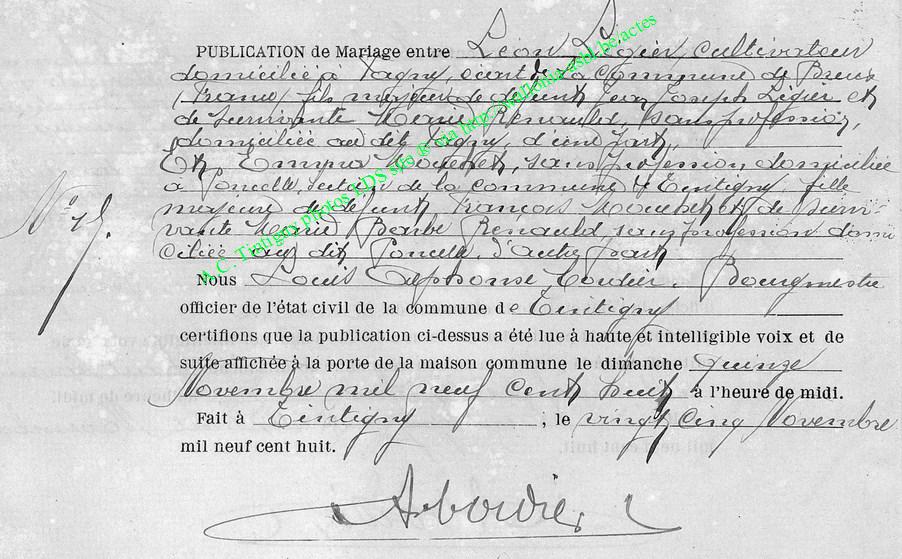 PUBLICATION de Mariage entre Léon Légier, cultivateur
domicilié à Fagny, écart de la Commune de Breux
(France, fils majeur de défunt Jean Joseph Légier et
de survivante Marie Renauld, sans profession,
domiciliée au dit Fagny, d'une part,
Et Emma Mouchet, sans profession domiciliée
à Poncelle, section de la commune de Tintigny fille
majeure de défunt François Mouchet et de survi-
vante Marie Barbe Renauld, sans profession domi
ciliée au dit Poncelle, d'autre part
N° 15.
Nous Louis Alphonse Bordier, Bourgmestre
officier de l'état civil de la commune de Tintigny
certifions que la publication ci-dessus a été lue à haute et intelligible voix et de
suite affichée à la porte de la maison commune le dimanche Quinze
Novembre mil neuf cent huit à l'heure de midi.
Fait à Tintigny, le vingt cinq Novembre
mil neuf cent huit.
A. C. Tintigny photos EDS sfs © via http://wallonia-asbl.be/actes